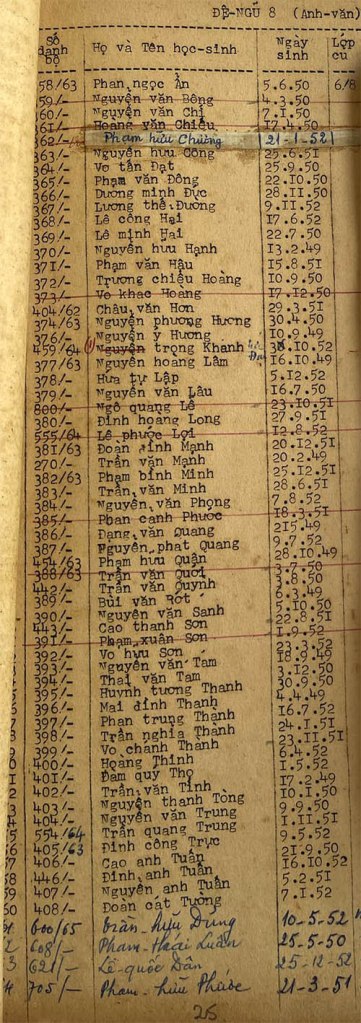 ĐỆ-NGŨ 8 (Anh-văn)
Số danh bộ Họ và Tên học-sinh Ngày sinh Lớp cũ
58/63 Phan ngọc Ẩn 5.6.50 6/8
59/- Nguyễn văn Bông 4.3.50
60/- Nguyễn văn Chi 7.I.50
36I/- Hoàng văn Chiểu I7.4.50
362/- Phạm hữu Chường 21-1-52
363/- Nguyễn hữu Công 25.6.5I
364/- Võ tấn Đạt 25.9.50
365/- Phạm văn Đông 22.I0.50
366/- Dương minh Đức 28.II.50
367/- Lương thế Đường 9.II.52
368/- Lê công Hai I7.6.52
369/- Lê minh Hai 22.7.50
370/- Nguyễn hữu Hạnh I3.2.49
37I/- Phạm văn Hậu I5.8.5I
372/- Trương chiêu Hoàng I0.9.50
373/- Võ khac Hoang I7.I2.50
404/62 Châu văn Hơn 29.3.5I
374/63 Nguyễn phương Hương 30.4.50
376/- Nguyễn y Hương I0.9.49
459/64 Nguyễn trọng Khanh .I0.52
377/63 Nguyễn hoàng Lâm I6.I0.49
378/- Hưa tự Lập 5.I2.52
379/- Nguyễn văn Lâu I6.7.50
800/- Ngô quang Lê 23.I0.5I
380/- Đinh hoàng Long 27.9.5I
555/64 Lê phước Lợi I2.8.52
38I/63 Đoàn đình Mạnh 20.I2.5I
270/- Trần văn Mạnh 20.2.49
382/63 Phạm bình Minh 25.I2.5I
383/- Trần văn Minh 28.6.5I
384/- Nguyễn văn Phong 7.8.52
385/- Phan canh Phước I8.3.5I
386/- Đặng văn Quang 2I5.49
387/- Nguyễn phat Quang 9.7.52
454/63 Phạm hưu Quân 28.I0.49
388/63 Trần văn Quới 3.7.50
442/- Trần văn Quynh 3.8.50
389/- Bùi văn Rớt 6.3.49
390/- Nguyễn văn Sanh 5.I0.50
443/- Cao thanh Sơn 22.8.5I
39I/- Phạm xuân Sơn I.9.52
392/- Võ hưu Sơn 23.3.52
393/- Nguyễn văn Tám I8.9.49
394/- Thai văn Tam 3.I2.50
395/- Huynh tương Thanh 30.9.50
396/- Mai đình Thanh 4.4.49
397/- Phan trung Thạnh I6.7.52
398/- Trần nghĩa Thanh 24.I.5I
399/- Võ chanh Thanh 23.II.5I
400/- Hoàng Thinh 6.4.52
40I/- Đàm quý Thọ I.5.52
402/- Trần văn Tính I7.2.49
403/- Nguyễn thanh Tòng I0.I.50
404/- Nguyễn văn Trung 9.9.50
554/64 Trần quang Trung I.II.5I
405/63 Đinh công Trực 9.5.52
406/- Cao anh Tuấn 2I.9.50
446/- Đinh anh Tuấn I6.I0.52
407/- Nguyễn anh Tuấn 5.2.5I
408/- Đoàn cát Tường 7.I.52
600/65 Trần-hữu Dũng 10-5-52
608/- Phạm-Hoài Luân 25-5-50
621/- Lê-quốc Dân 25-12-52
705/- Phạm-hữu Phước 21-3-51
26